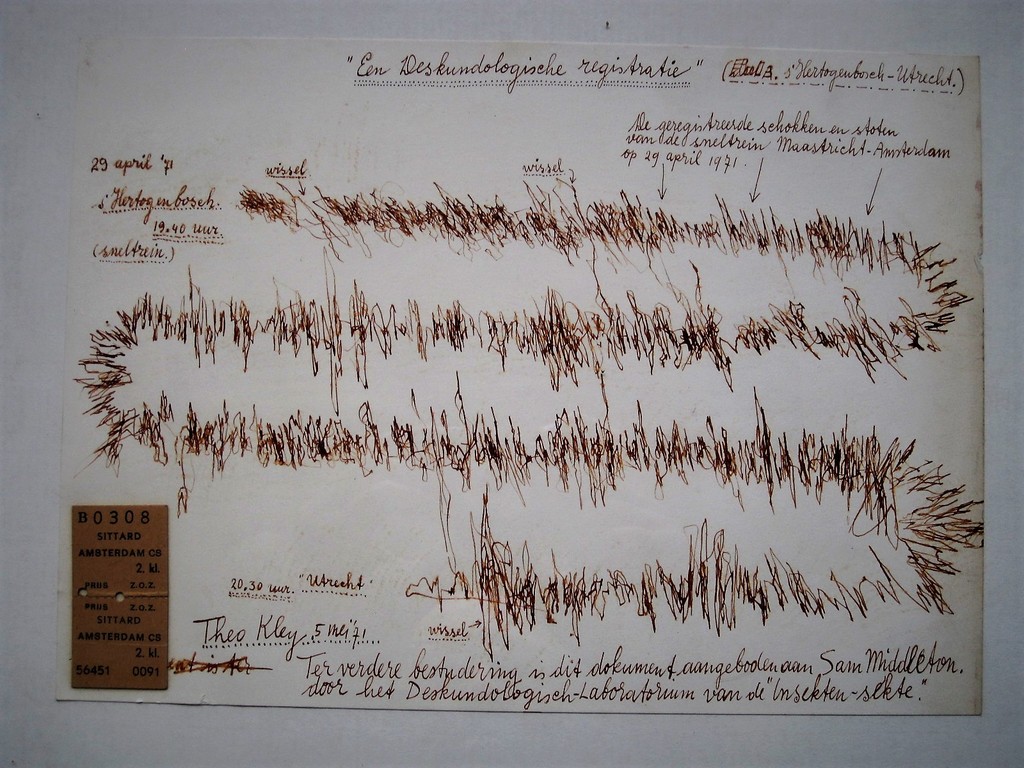 "Een Deskundologische registratie"
s'Hertogenbosch-Utrecht.)
De geregistreerde schokken en stoten
van de sneltrein Maastricht-Amsterdam
op 29 april 1971.
29 april '71
s'Hertogenbosch.
19.40 uur
(sneltrein.)
wissel
wissel
B0308
SITTARD
AMSTERDAM CS
2. kl.
PRIJS Z.O.Z.
PRIJS Z.O.Z.
SITTARD
AMSTERDAM CS
2. kl.
56451 0091
20.30 uur. "Utrecht"
wissel
Theo Kley. 5 mei '71...
Ter verdere bestudering is dit dokument aangeboden aan Sam Middleton.
door het Deskundologisch-Laboratorium van de "Insekten-sekte".